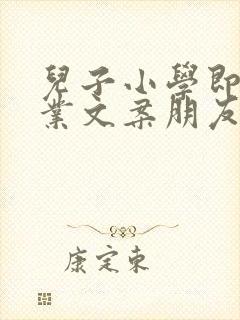 兒子小學即
業文案朋友
康定東